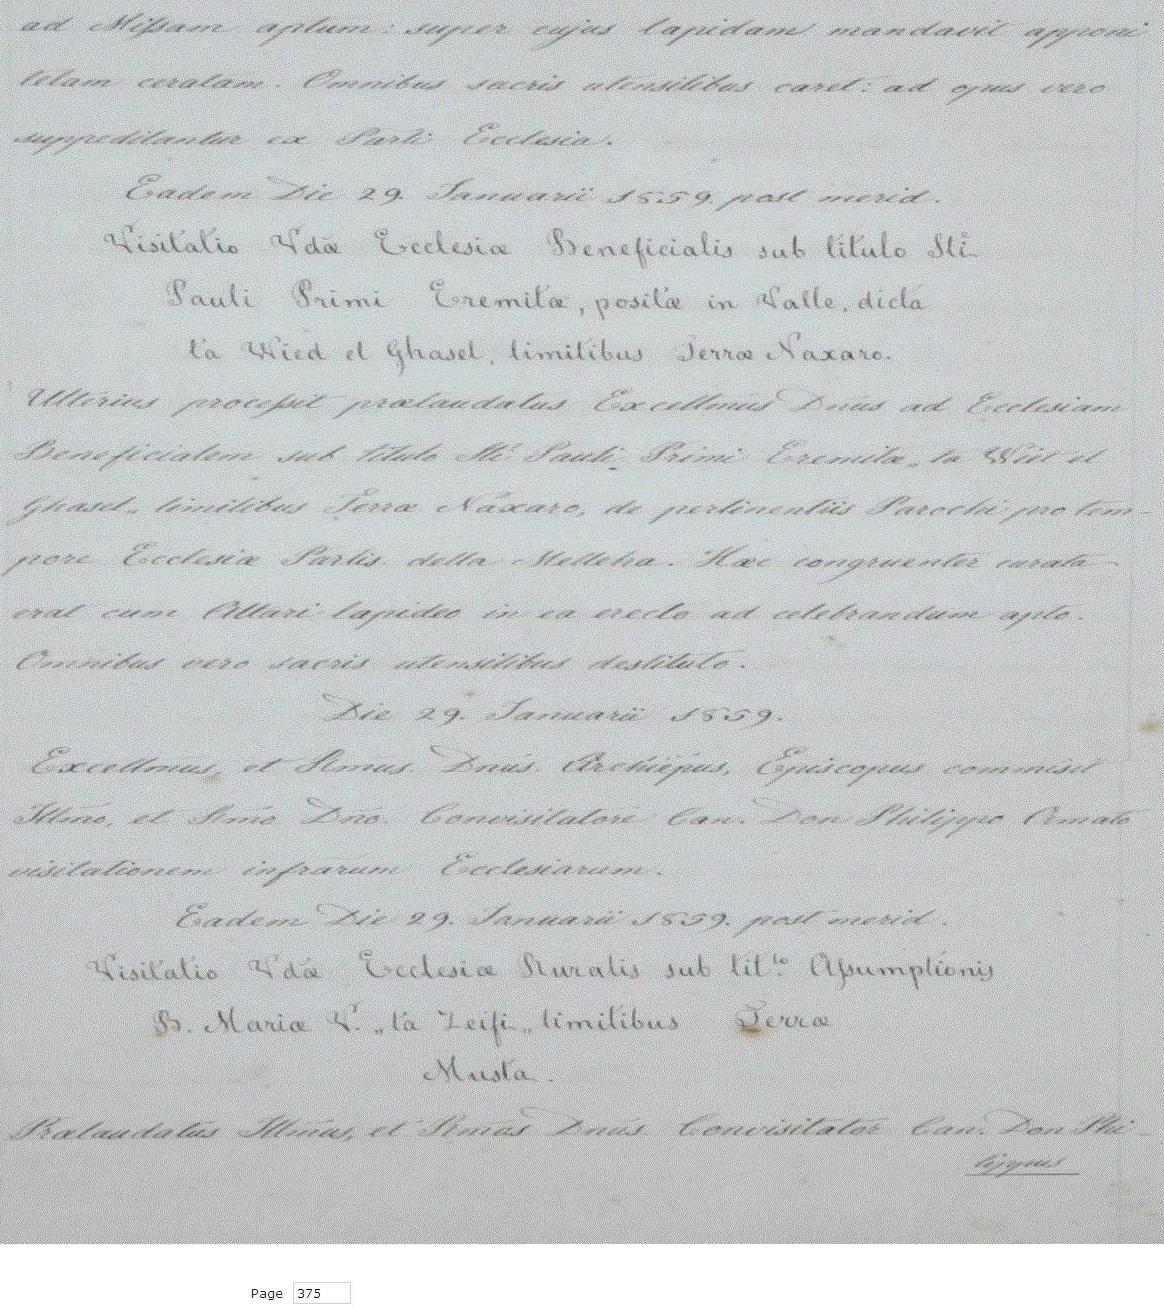 ad Missam aptum: super cujus lapidam mandavit apponi
telam ceratam. Omnibus sacris utensilibus caret: ad opus vero
suppeditantur ex Parli Ecclesia.
Eadem Die 29. Januarii 1859. post merid.
Visitatio Vdæ Ecclesiæ Beneficialis sub titulo Sti
Pauli Primi Eremitæ, positæ in Valle, dicta
ta Wied el Ghasel, limitibus Terræ Naxaro.
Ulterius processit prælaudatus Excellmus Dnus ad Ecclesiam
Beneficialem sub titulo Sti Pauli Primi Eremitæ „ta Wied el
Ghasel„ limitibus Terræ Naxaro, de pertinentiis Parochi pro tem-
pore Ecclesiæ Partis della Melleha. Hæc congruenter curata
erat cum Altari lapideo in ea erecto ad celebrandum apto.
Omnibus vero sacris utensilibus destituto.
Die 29. Januarii 1859.
Excellmus, et Rmus. Dnus. Archiepus, Episcopus commisit
Illmo, et Rmo Dno. Convisitatore Can. Don Philippo Amato
visitationem infrarum Ecclesiarum.
Eadem Die 29. Januarii 1859. post merid.
Visitatio Vdæ Ecclesiæ Ruralis sub tit.to Assumptionis
B. Mariæ V. „ta Zeifi„ limitibus Terræ
Musta.
Prælaudatus Illmus, et Rmus Dnus Convisitator Can. Don Phi-
lippus
Page 375